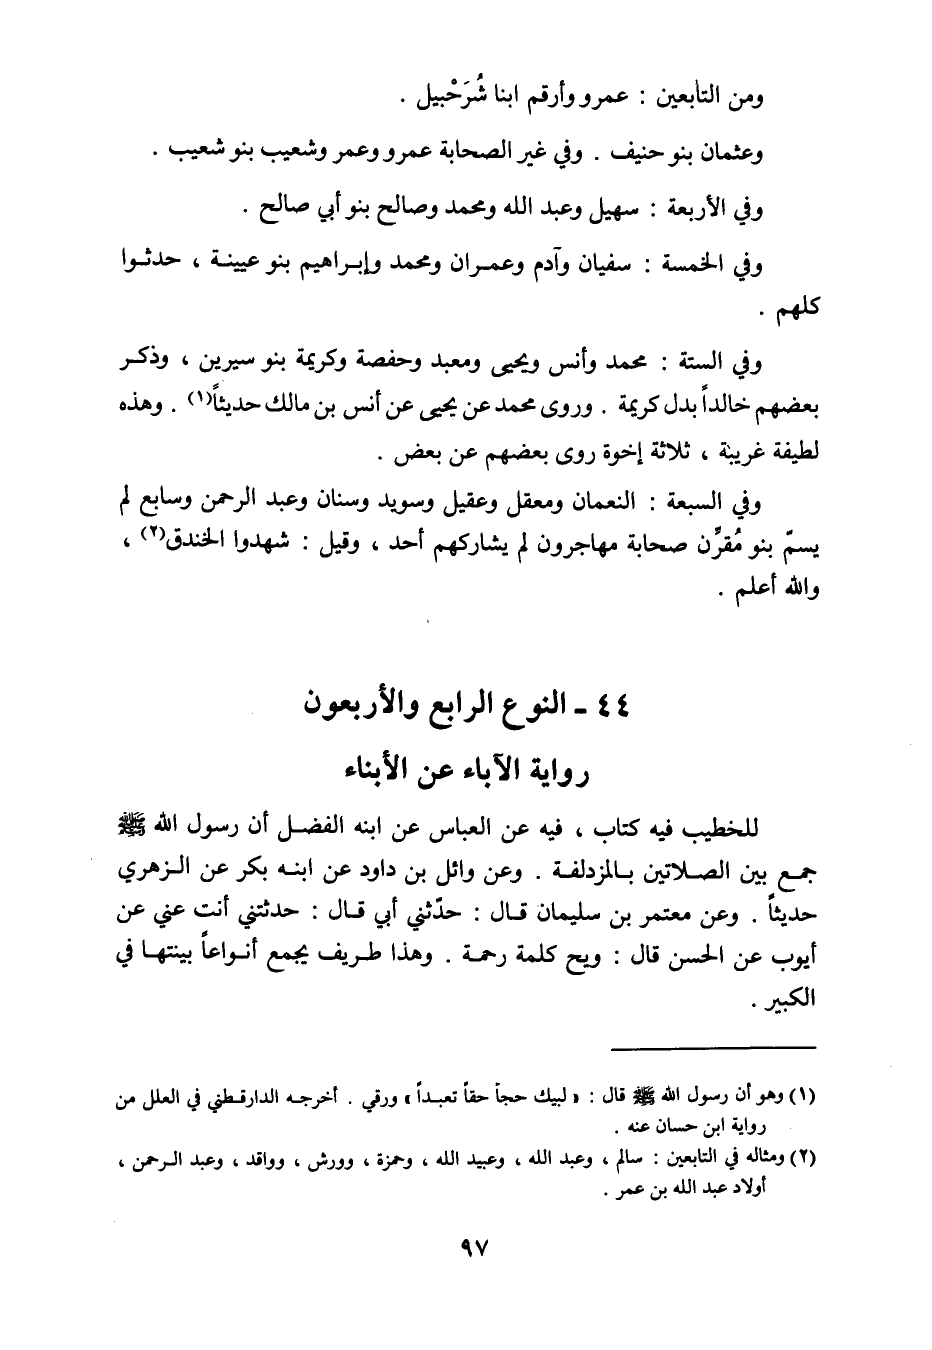 ومن التابعين : عمرو وأرقم ابنا شُرَحْبيل .
وعثمان بنو حنيف . وفي غير الصحابة عمرو وعمر وشعيب بنو شعيب .
وفي الأربعة : سهيل وعبد الله ومحمد وصالح بنو أبي صالح .
وفي الخمسة : سفيان وآدم وعمران ومحمد وإبراهيم بنو عيينة ، حدثوا
كلهم .
وفي الستة : محمد وأنس ويحيى ومعبد وحفصة وكريمة بنو سيرين ، وذكر
بعضهم خالداً بدل كريمة . وروى محمد عن يحيى عن أنس بن مالك حديثاً(١) . وهذه
لطيفة غريبة ، ثلاثة إخوة روى بعضهم عن بعض .
وفي السبعة : النعمان ومعقل وعقيل وسويد وسنان وعبد الرحمن وسابع لم
يسمّ بنو مُقرِّن صحابة مهاجرون لم يشاركهم أحد ، وقيل : شهدوا الخندق(٢) ،
والله أعلم .
٤٤ - النوع الرابع والأربعون
رواية الآباء عن الأبناء
للخطيب فيه كتاب ، فيه عن العباس عن ابنه الفضل أن رسول الله ﷺ
جمع بين الصلاتين بالمزدلفة . وعن وائل بن داود عن ابنه بكر عن الزهري
حديثاً . وعن معتمر بن سليمان قال : حدّثني أبي قال : حدثتني أنت عني عن
أيوب عن الحسن قال : ويح كلمة رحمة . وهذا طريف يجمع أنواعاً بينتها في
الكبير .
(١) وهو أن رسول الله ﷺ قال : « لبيك حجاً حقاً تعبداً » ورقي . أخرجه الدارقطني في العلل من
رواية ابن حسان عنه .
(٢) ومثاله في التابعين : سالم ، وعبد الله ، وعبيد الله ، وحمزة ، وورش ، وواقد ، وعبد الرحمن ،
أولاد عبد الله بن عمر .
٩٧